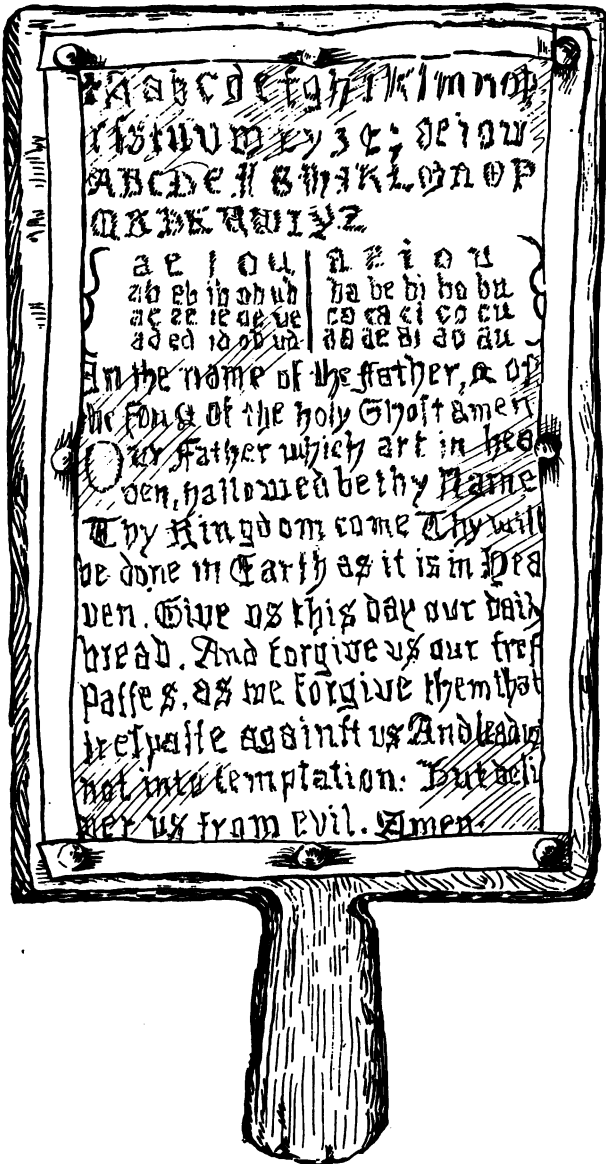 A a b c d e f g h i k l m n o p
r ſ s t u v w x y z & ; a e i o u
A B C D E F G H I K L M N O P
Q R S T U W X Y Z
a e i o u a e i o u
ab eb ib ob ub ba be bi bo bu
ac ec ic oc uc ca ce ci co cu
ad ed id od ud da de di do du
In the name of the Father, & of
the Son & of the holy Ghoſt amen
Our Father which art in hea
ven, hallowed be thy Name
Thy Kingdom come Thy will
be done in Earth as it is in Hea
ven. Give us this day our daily
bread. And forgive us our treſ
paſſes, as we forgive them that
treſpaſſe againſt us And lead us
not into temptation: But deli
ver us from evil. Amen.